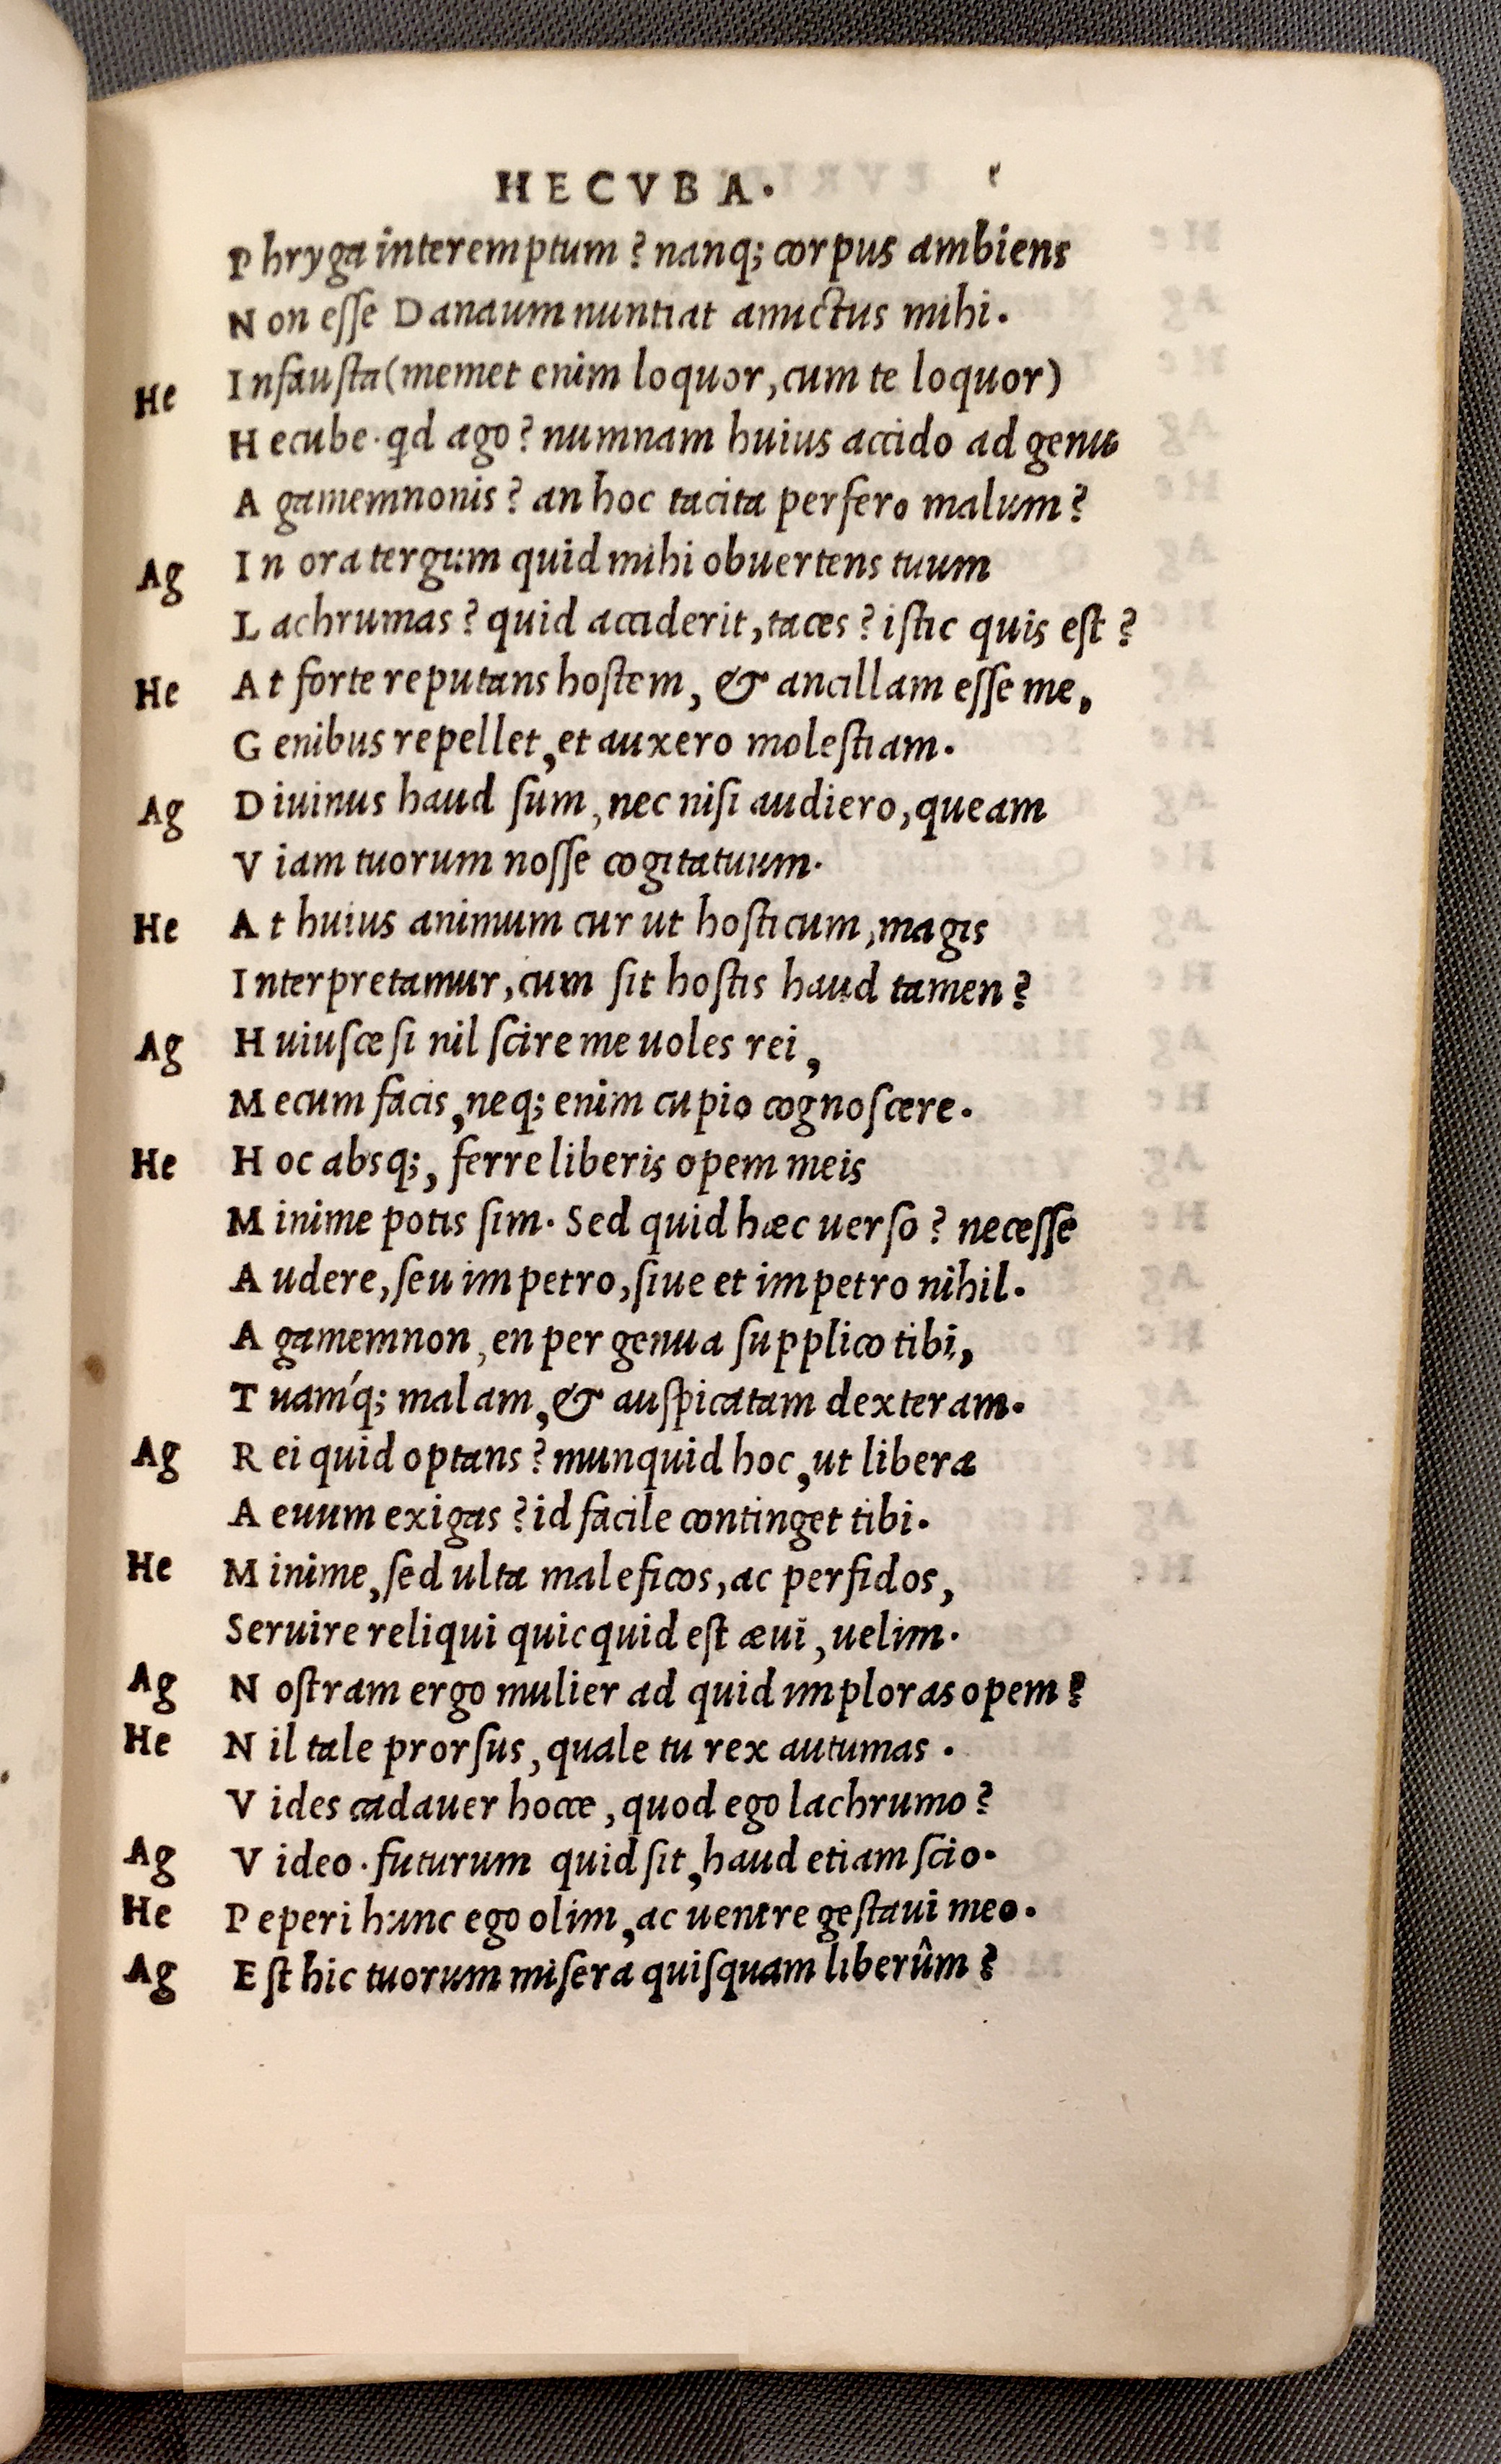 HECVBA.
Phryga interemptum? nanq; corpus ambiens
Non esse Danaum nuntiat amictus mihi.
He Infausta (memet enim loquor, cum te loquor)
Hecube. qd ago? numnam huius accido ad genu
Agamemnonis? an hoc tacita perfero malum?
Ag In ora tergum quid mihi obuertens tuum
Lachrumas? quid acciderit, taces? istic quis est?
He At forte reputans hostem, & ancillam esse me,
Genibus repellet, et auxero molestiam.
Ag Diuinus haud sum, nec nisi audiero, queam
Viam tuorum nosse cogitatuum.
He At huius animum cur ut hosticum, magis
Interpretamur, cum sit hostis haud tamen?
Ag Huiusce si nil scire me uoles rei,
Mecum facis, neq; enim cupio cognoscere.
He Hoc absq;, ferre liberis opem meis
Minime potis sim. Sed quid hæc uerso? necesse
Audere, seu impetro, siue et impetro nihil.
Agamemnon, en per genua supplico tibi,
Tuam'q; malam, & auspicatam dexteram.
Ag Rei quid optans? munquid hoc, ut libera
Aeuum exigas? id facile continget tibi.
He Minime, sed ulta maleficos, ac perfidos,
Seruire reliqui quicquid est æui, uelim.
Ag Nostram ergo mulier ad quid imploras opem?
He Nil tale prorsus, quale tu rex autumas.
Vides cadauer hocce, quod ego lachrumo?
Ag Video. futurum quid sit, haud etiam scio.
He Peperi hunc ego olim, ac uentre gestaui meo.
Ag Est hic tuorum misera quisquam liberûm?